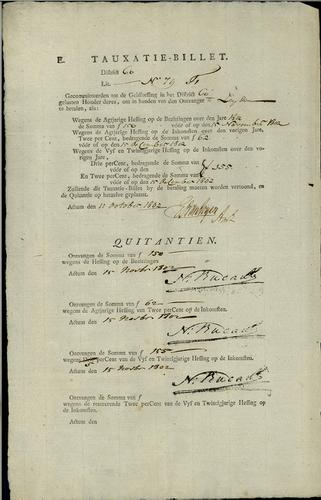 E. TAUXATIE-BILLET.
District 60
Lit. No 79
Gecommitteerden tot de Geldheffing in het District 60
gelasten Houder dezes, om in handen van den Ontvanger
te betalen, als:
Wegens de Agtjarige Heffing op de Bezittingen over den Jare 1802
de Somma van ƒ 150 vóór of op den 15 November 1802
Wegens de Agtjarige Heffing op de Inkomsten over den vorigen Jare,
Twee per Cent, bedragende de Somma van ƒ 62
vóór of op den 15 december 1802
Wegens de Vyf en Twintigjarige Heffing op de Inkomsten over den vorigen Jare,
Drie perCent, bedragende de Somma van ƒ 155
vóór of op den
En Twee perCent, bedragende de Somma van ƒ
vóór of op den 15 december 1802
Zullende dit Tauxatie-Billet by de betaling moeten worden vertoond, en
de Quitantie op hetzelve geplaatst.
Actum den 11 October 1802
QUITANTIEN.
Ontvangen de Somma van ƒ 150
wegens de Heffing op de Bezittingen
Actum den 15 Novbr 1802
N. Bucaud
Ontvangen de Somma van ƒ 62
wegens de Agtjarige Heffing van Twee perCent op de Inkomsten.
Actum den 15 Novbr 1802
N. Bucaud
Ontvangen de Somma van ƒ 155
wegens perCent van de Vyf en Twintigjarige Heffing op de Inkomsten.
Actum den 15 Novbr 1802
N. Bucaud
Ontvangen de Somma van ƒ
wegens de resterende Twee perCent van de Vyf en Twintigjarige Heffing op
de Inkomsten.
Actum den